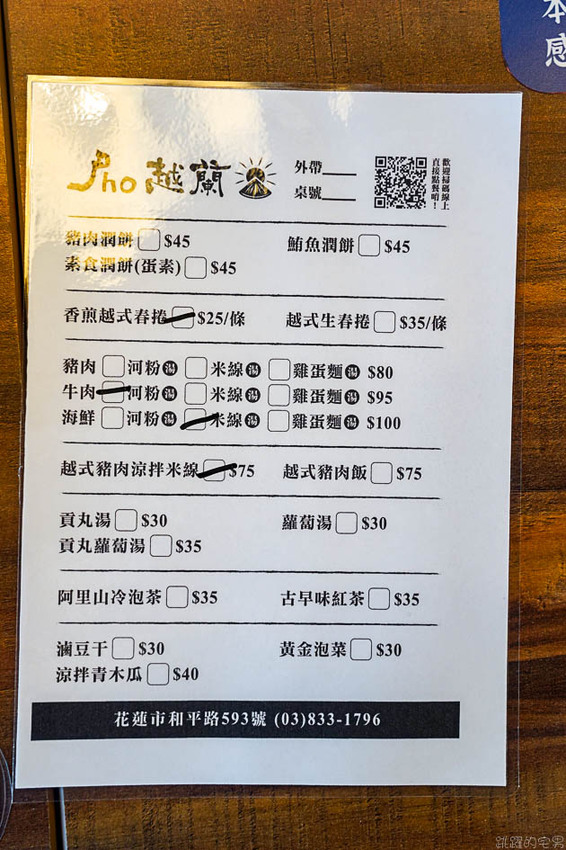 本
感
Pho越蘭
外帶
桌號
歡迎掃碼線上
直接點餐唷！
豬肉潤餅 $45 鮪魚潤餅 $45
素食潤餅(蛋素) $45
香煎越式春捲 $25/條 越式生春捲 $35/條
豬肉 河粉湯 米線湯 雞蛋麵湯 $80
牛肉 河粉湯 米線湯 雞蛋麵湯 $95
海鮮 河粉湯 米線湯 雞蛋麵湯 $100
越式豬肉涼拌米線 $75 越式豬肉飯 $75
貢丸湯 $30 蘿蔔湯 $30
貢丸蘿蔔湯 $35
阿里山冷泡茶 $35 古早味紅茶 $35
滷豆干 $30 黃金泡菜 $30
涼拌青木瓜 $40
花蓮市和平路593號 (03)833-1796
跳躍的宅男